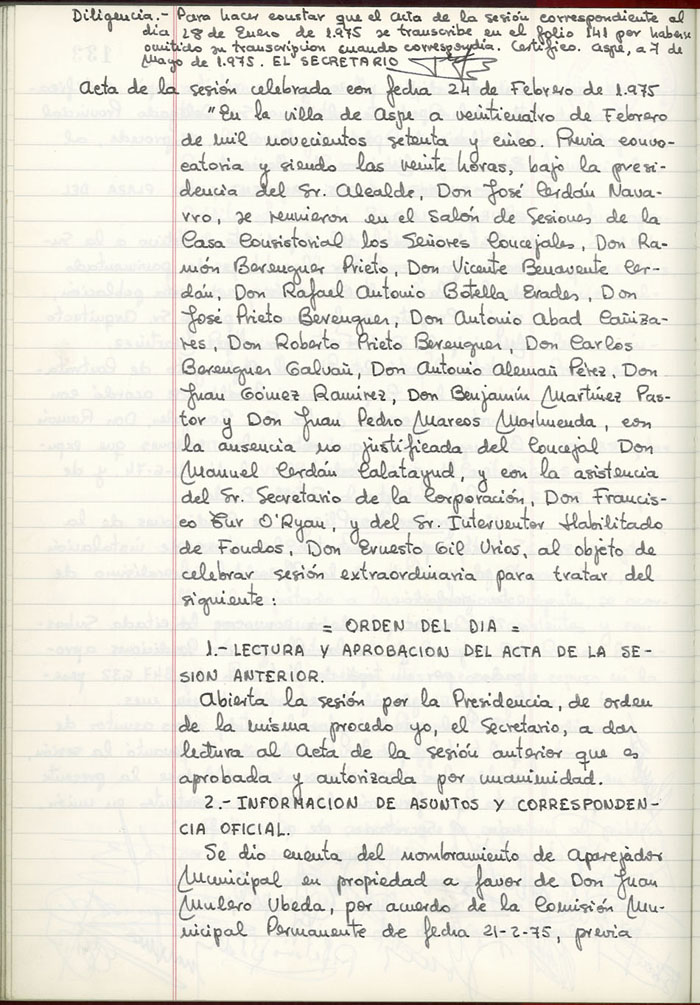 Diligencia.- Para hacer constar que el acta de la sesión correspondiente al
día 28 de Enero de 1.975 se transcribe en el folio 141 por haberse
omitido su transcripcion cuando correspondía. Certifico. Aspe, a 7 de
Mayo de 1.975. EL SECRETARIO
Acta de la sesión celebrada con fecha 24 de Febrero de 1.975
"En la villa de Aspe a veinticuatro de Febrero
de mil novecientos setenta y cinco. Previa convo-
catoria y siendo las veinte horas, bajo la presi-
dencia del Sr. Alcalde, Don José Cerdán Nava-
rro, se reunieron en el Salón de Sesiones de la
Casa Consistorial los Señores Concejales, Don Ra-
món Berenguer Prieto, Don Vicente Benavente Cer-
dán, Don Rafael Antonio Botella Erades, Don
José Prieto Berenguer, Don Antonio Abad Cañiza-
res, Don Roberto Prieto Berenguer, Don Carlos
Berenguer Galvañ, Don Antonio Alemañ Pérez, Don
Juan Gómez Ramirez, Don Benjamín Martínez Pas-
tor y Don Juan Pedro Marcos Marhuenda, con
la ausencia no justificada del Concejal Don
Manuel Cerdán Calatayud, y con la asistencia
del Sr. Secretario de la Corporación, Don Francis-
co Tur O'Ryan, y del Sr. Interventor Habilitado
de Fondos, Don Ernesto Gil Urios, al objeto de
celebrar sesión extraordinaria para tratar del
siguiente:
= ORDEN DEL DIA =
1.- LECTURA Y APROBACION DEL ACTA DE LA SE-
SION ANTERIOR.
Abierta la sesión por la Presidencia, de orden
de la misma procedo yo, el Secretario, a dar
lectura al Acta de la sesión anterior que es
aprobada y autorizada por unanimidad.
2.- INFORMACION DE ASUNTOS Y CORRESPONDEN-
CIA OFICIAL.
Se dio cuenta del nombramiento de Aparejador
Municipal en propiedad a favor de Don Juan
Mulero Ubeda, por acuerdo de la Comisión Mu-
nicipal Permanente de fecha 21-2-75, previa